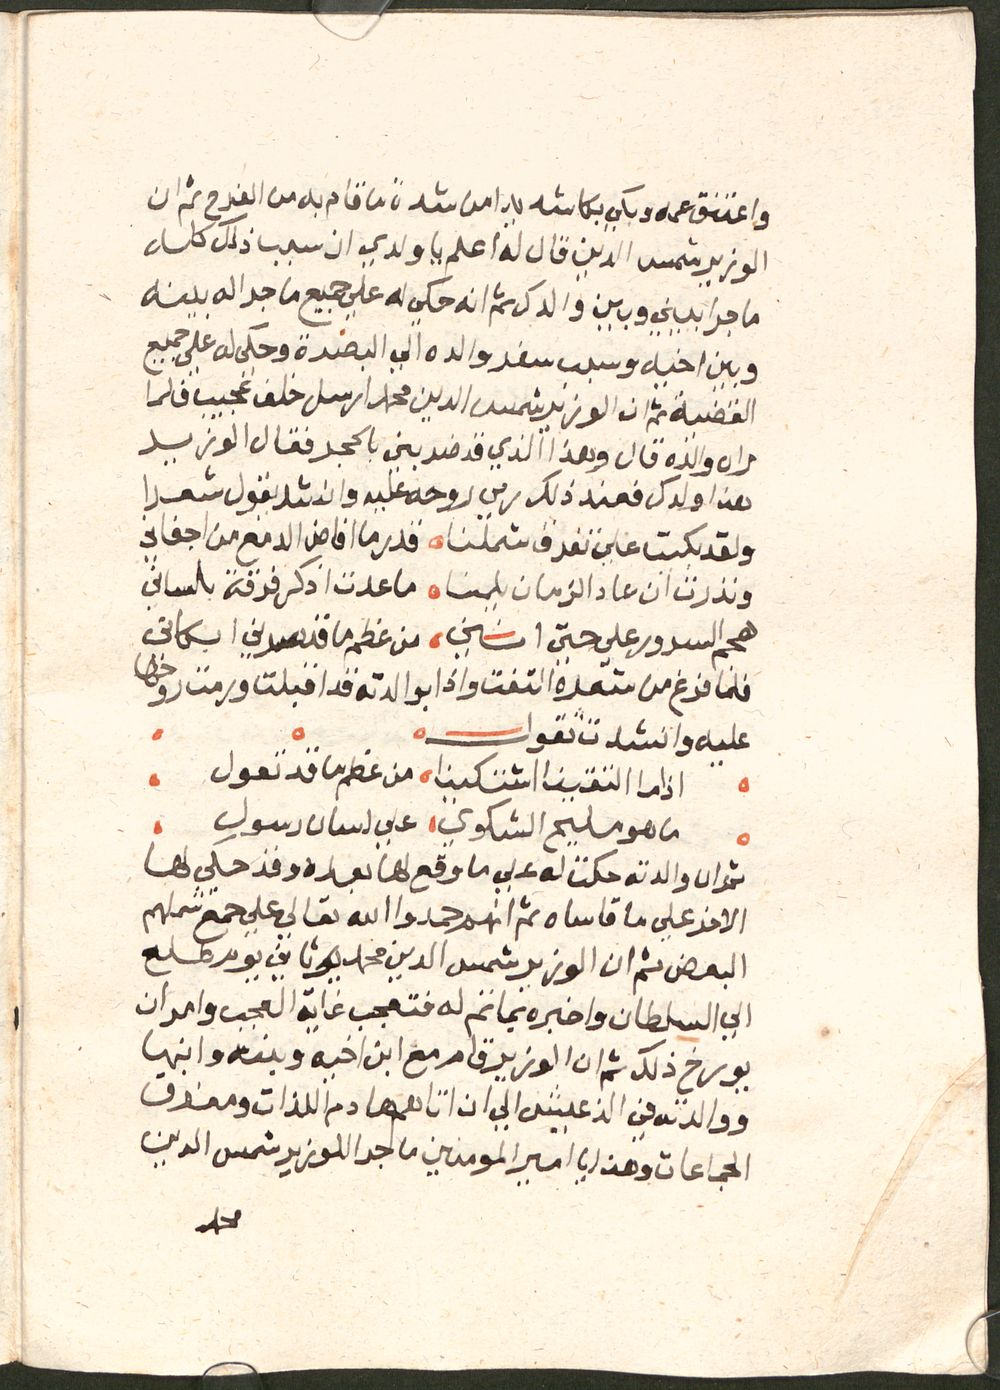 واعتنق عمه وبكي بكا شديدا من شدة ما قام به من الفرح ثم ان
الوزير شمس الدين قال له اعلم يا ولدي ان سبب ذلك كله
ما جرا بيني وبين والدك ثم انه حكي له علي جميع ما جرا له بينه
وبين اخيه وسبب سفر والده الي البصرة وحكي له علي جميع
القضية ثم ان الوزير شمس الدين محمد ارسل خلف عجيب فلما
راه والده قال وهذا الذي قد ضربني بالحجر فقال الوزير
هذا ولدك فعند ذلك رمي روحه عليه وانشد يقول شعرا
ولقد بكيت علي تفرق شملنا ٥ قدر ما افاض الدمع من اجفاني
ونذرت ان عاد الزمان يلمنا ٥ ما عدت اذكر فرقة بلساني
هجم السرور علي حتي انني ٥ من عظم ما قد سرني ابكاني
فلما فرغ من شعره التفت واذا بوالدته قد اقبلت ورمت روحها
عليه وانشدت تقول
اذا ما التقينا اشتكينا ٥ من عظم ما قد نقول
ما هو مليح الشكوي ٥ علي لسان رسول
ثم ان والدته حكت له علي ما وقع لها بعده وقد حكي لها
الاخر علي ما قاساه ثم انهم حمدوا الله تعالي علي جمع شملهم
البعض ثم ان الوزير شمس الدين محمد ثاني يوم طلع
الي السلطان واخبره بما تم له فتعجب غاية العجب وامر ان
يورخ ذلك ثم ان الوزير قام مع ابن اخيه وبنته وابنها
ووالدته في الذ عيش الي ان اتاهم هادم اللذات ومفرق
الجماعات وهذا يا امير المومنين ما جرا للوزير شمس الدين
محمد